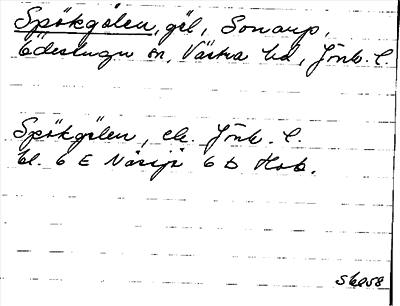 Spökgölen, göl, Sonarp,
Edeshuga sn, Västra hd, Jönk. l.
Spökgölen, ek. Jönk. l.
bl. 6 E Nässjö 6 D Hok.